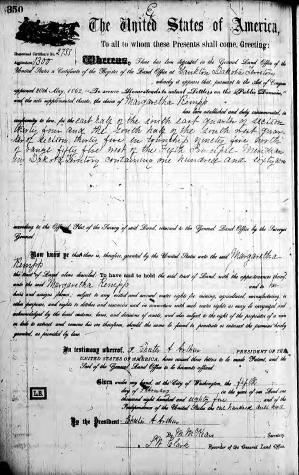 350
The United States of America,
To all to whom these Presents shall come, Greeting:
Homestead Certificate No. 2751
Application 1300
Whereas, There has been deposited in the General Land Office of the
United States a Certificate of the Register of the Land Office at Yankton Dakota Territory
whereby it appears that, pursuant to the Act of Congress
approved 20th May, 1862, "To secure Homesteads to actual Settlers on the Public Domain,"
and the acts supplemental thereto, the claim of Margaretha Rempp
has been established and duly consummated, in
conformity to law, for the east half of the south east quarter of section
thirty four and the south half of the south west quar
ter of section thirty five in township ninety five north
of range fifty five west of the Fifth Principal Meridian
in Dakota Territory containing one hundred and sixty acres
according to the Official Plat of the Survey of said Land, returned to the General Land Office by the Surveyor
General.
Now know ye that there is, therefore, granted by the United States unto the said Margaretha
Rempp
the tract of Land above described: To have and to hold the said tract of Land, with the appurtenances thereof,
unto the said Margaretha Rempp and to her
heirs and assigns forever, subject to any vested and accrued water rights for mining, agricultural, manufacturing, or
other purposes, and rights to ditches and reservoirs used in connection with such water rights as may be recognized and
acknowledged by the local customs, laws, and decisions of courts, and also subject to the right of the proprietor of a vein
or lode to extract and remove his ore therefrom, should the same be found to penetrate or intersect the premises hereby
granted, as provided by law.
In testimony whereof, I, Chester A. Arthur PRESIDENT OF THE
UNITED STATES OF AMERICA, have caused these letters to be made Patent, and the
Seal of the General Land Office to be hereunto affixed.
Given under my hand, at the City of Washington, the fifth
day of, in the year of our Lord one
thousand eight hundred and eighty five, and of the
Independence of the United States the one hundred and
L.S.
By the President: Chester A. Arthur
By
S. W. Clark Recorder of the General Land Office.